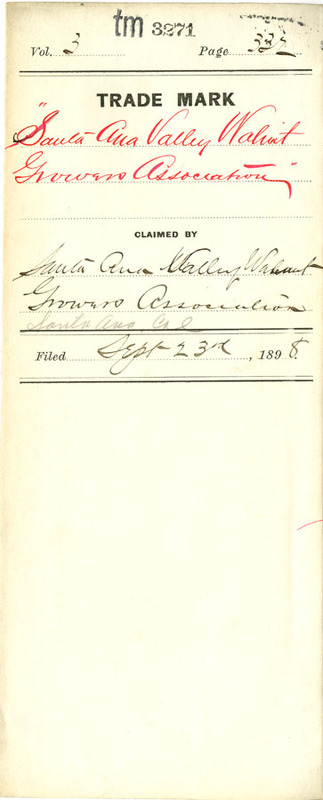 tm 3271
Vol. 3 Page 332
TRADE MARK
"Santa Ana Valley Walnut
Growers Association"
CLAIMED BY
Santa Ana Valley Walnut
Growers Association
Santa Ana Cal
Filed Sept 23rd, 1898.